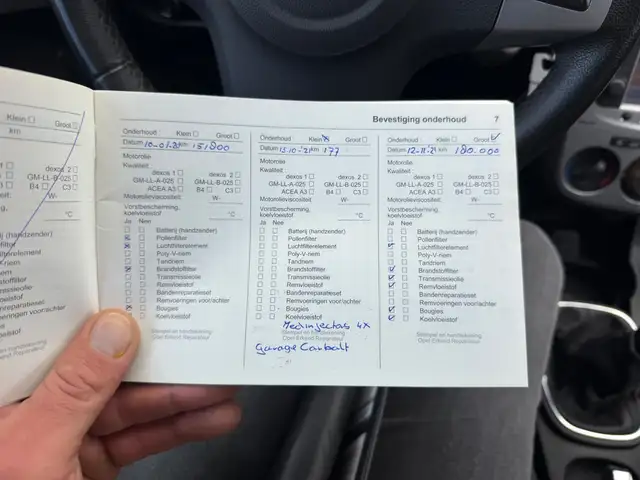 Klein ☐
Groot ☐
km
dexos 2 ☐
GM-LL-B-025 ☐
B4 ☐ C3 ☐
W-
°C
Bevestiging onderhoud 7
Onderhoud Klein ☐ Groot ☐
Datum 10-01-21 km 151800
Motorolie
Kwaliteit
dexos 1 ☐ dexos 2 ☐
GM-LL-A-025 ☐ GM-LL-B-025 ☐
ACEA A3 ☐ B4 ☐ C3 ☐
Motorolieviscositeit W-
Vorstbescherming,
koelvloeistof °C
Ja Nee
Batterij (handzender)
Pollenfilter
Luchtfilterelement
Poly-V-riem
Tandriem
Brandstoffilter
Transmissieolie
Remvloeistof
Bandenreparatieset
Remvoeringen voor/achter
Bougies
Koelvloeistof
Stempel en handtekening
Opel Erkend Reparateur
Onderhoud Klein ☒ Groot ☐
Datum 13-10-21 km 177
Motorolie
Kwaliteit
dexos 1 ☐ dexos 2 ☐
GM-LL-A-025 ☐ GM-LL-B-025 ☐
ACEA A3 ☐ B4 ☐ C3 ☐
Motorolieviscositeit W-
Vorstbescherming,
koelvloeistof °C
Ja Nee
Batterij (handzender)
Pollenfilter
Luchtfilterelement
Poly-V-riem
Tandriem
Brandstoffilter
Transmissieolie
Remvloeistof
Bandenreparatieset
Remvoeringen voor/achter
Bougies
Koelvloeistof
4x
Stempel en handtekening
Opel Erkend Reparateur
Garage
Onderhoud Klein ☐ Groot ☑
Datum 12-11-21 km 180.000
Motorolie
Kwaliteit
dexos 1 ☐ dexos 2 ☐
GM-LL-A-025 ☐ GM-LL-B-025 ☐
ACEA A3 ☐ B4 ☐ C3 ☐
Motorolieviscositeit W-
Vorstbescherming,
koelvloeistof °C
Ja Nee
Batterij (handzender)
Pollenfilter
Luchtfilterelement
Poly-V-riem
Tandriem
Brandstoffilter
Transmissieolie
Remvloeistof
Bandenreparatieset
Remvoeringen voor/achter
Bougies
Koelvloeistof
Stempel en handtekening
Opel Erkend Reparateur